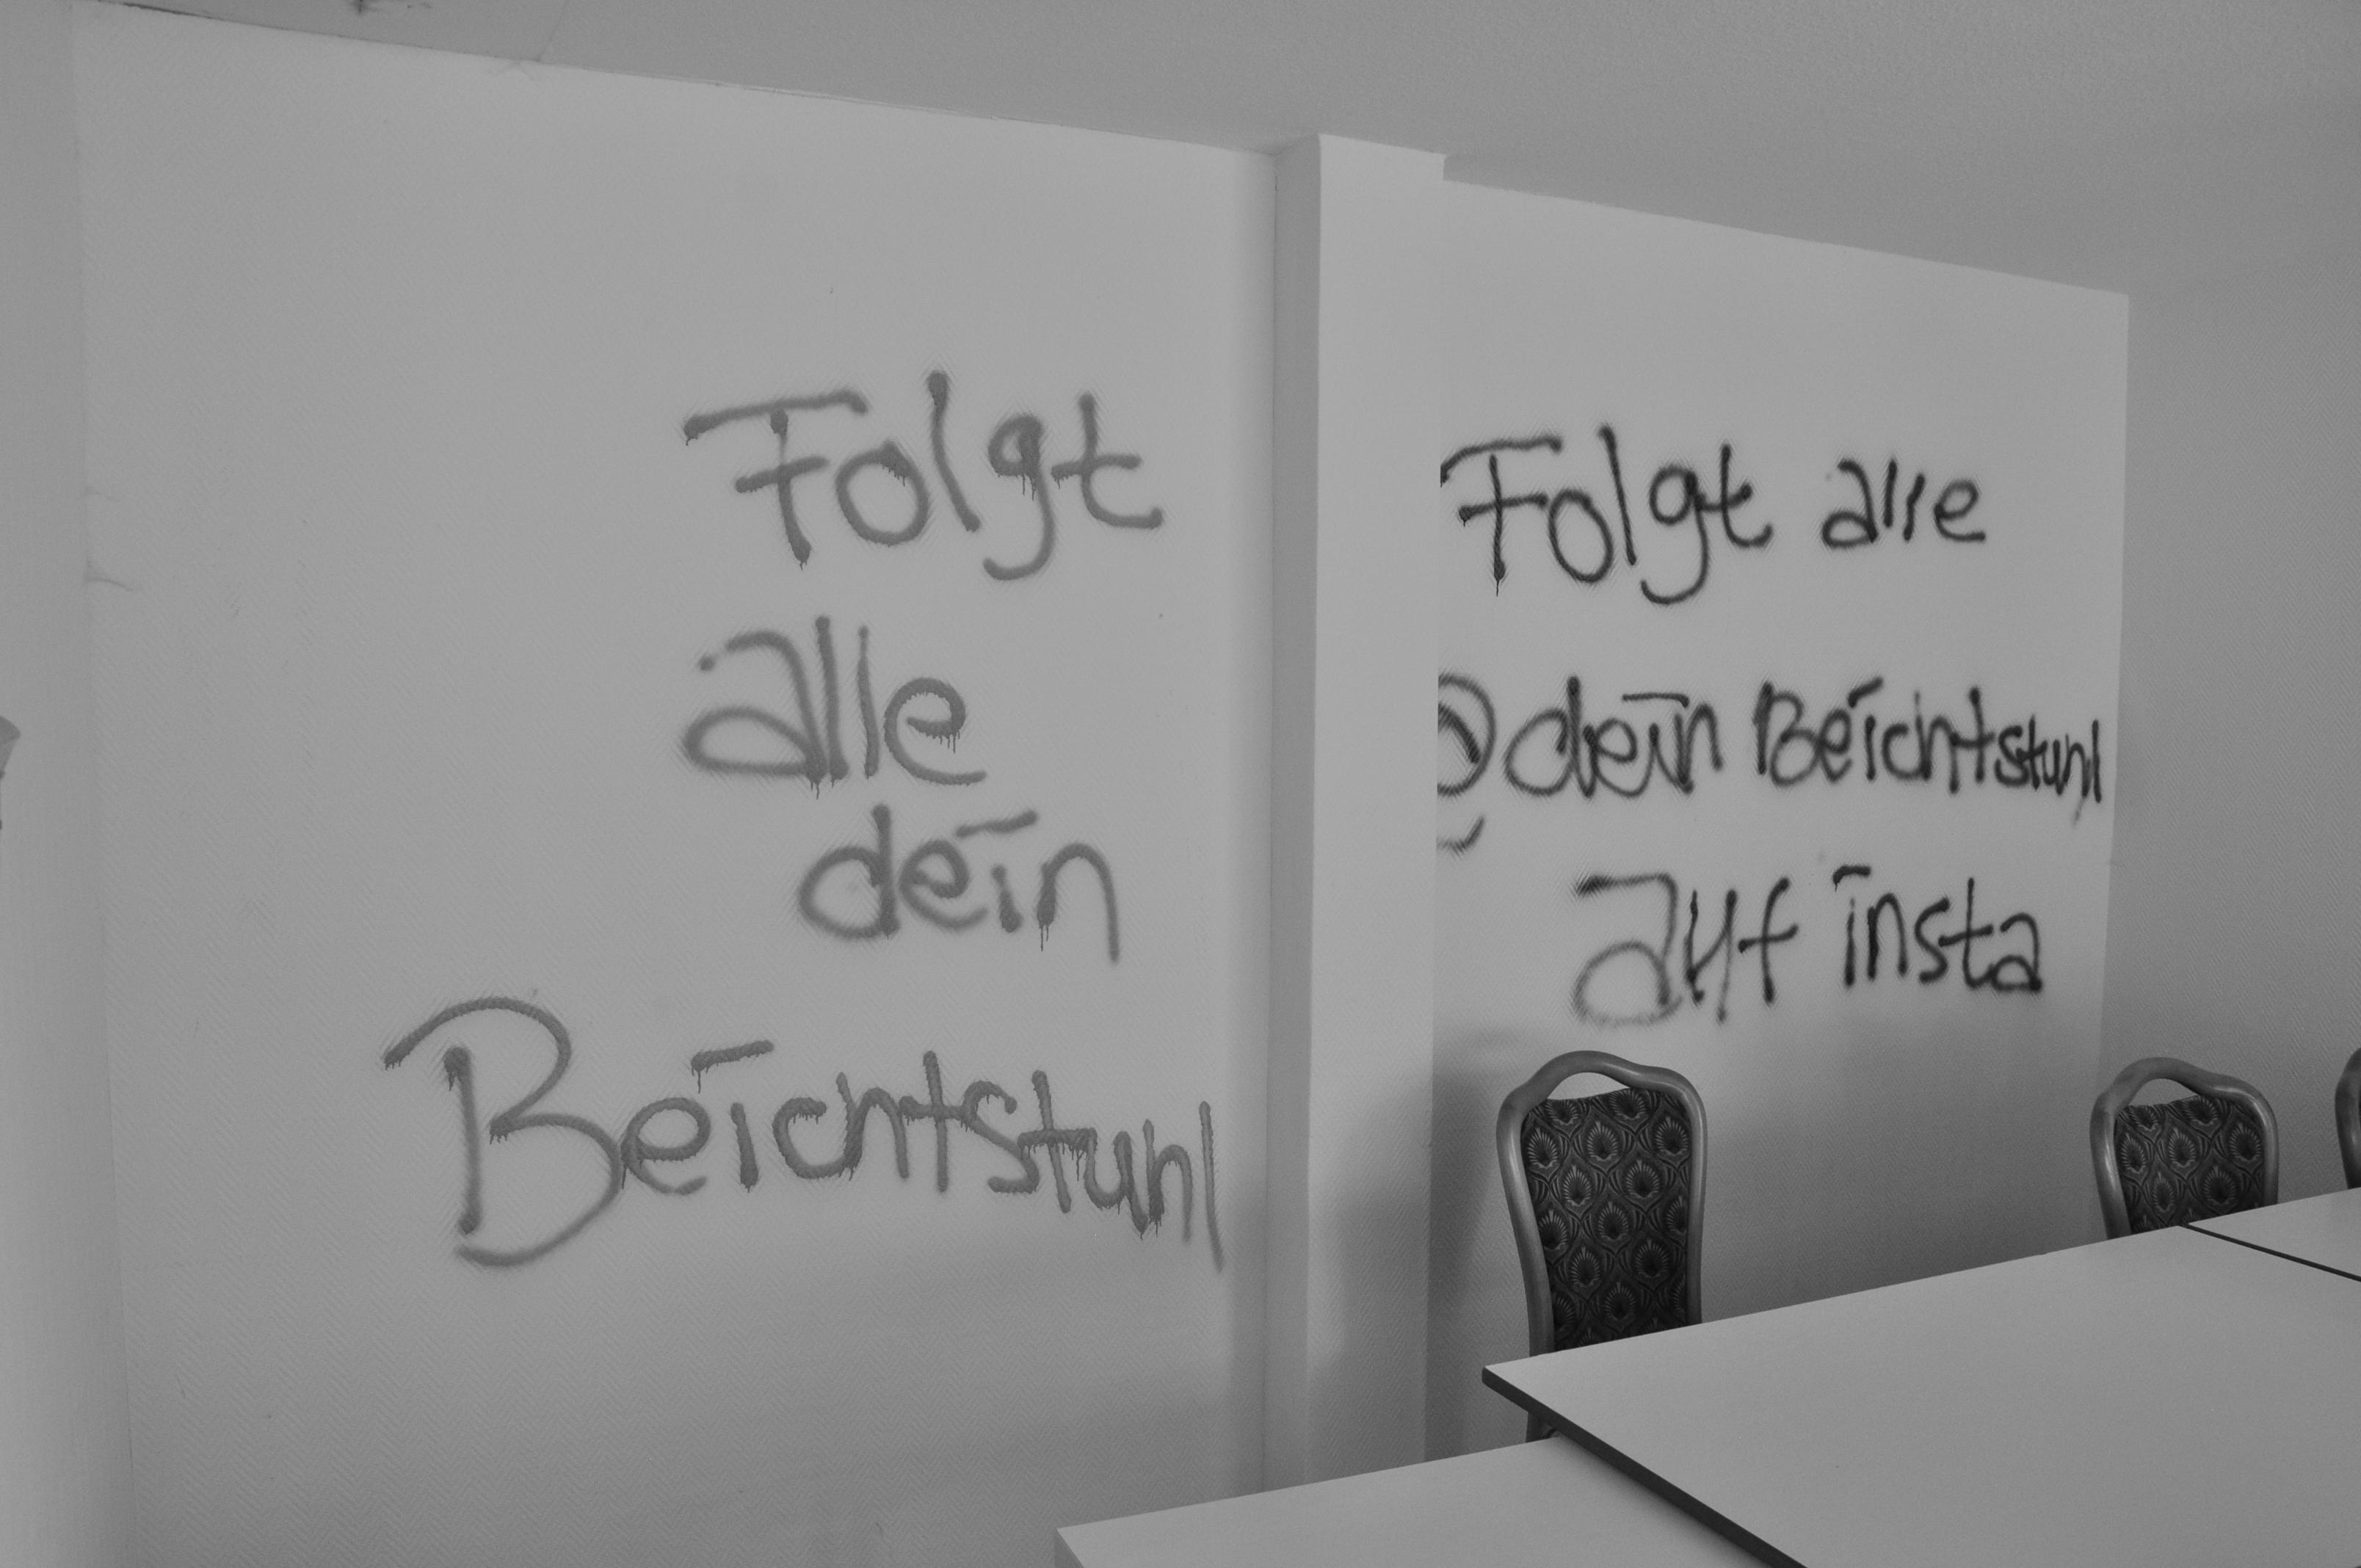 Folgt
alle
dein
Beichtstuhl
Folgt alle
@dein Beichtstuhl
auf insta